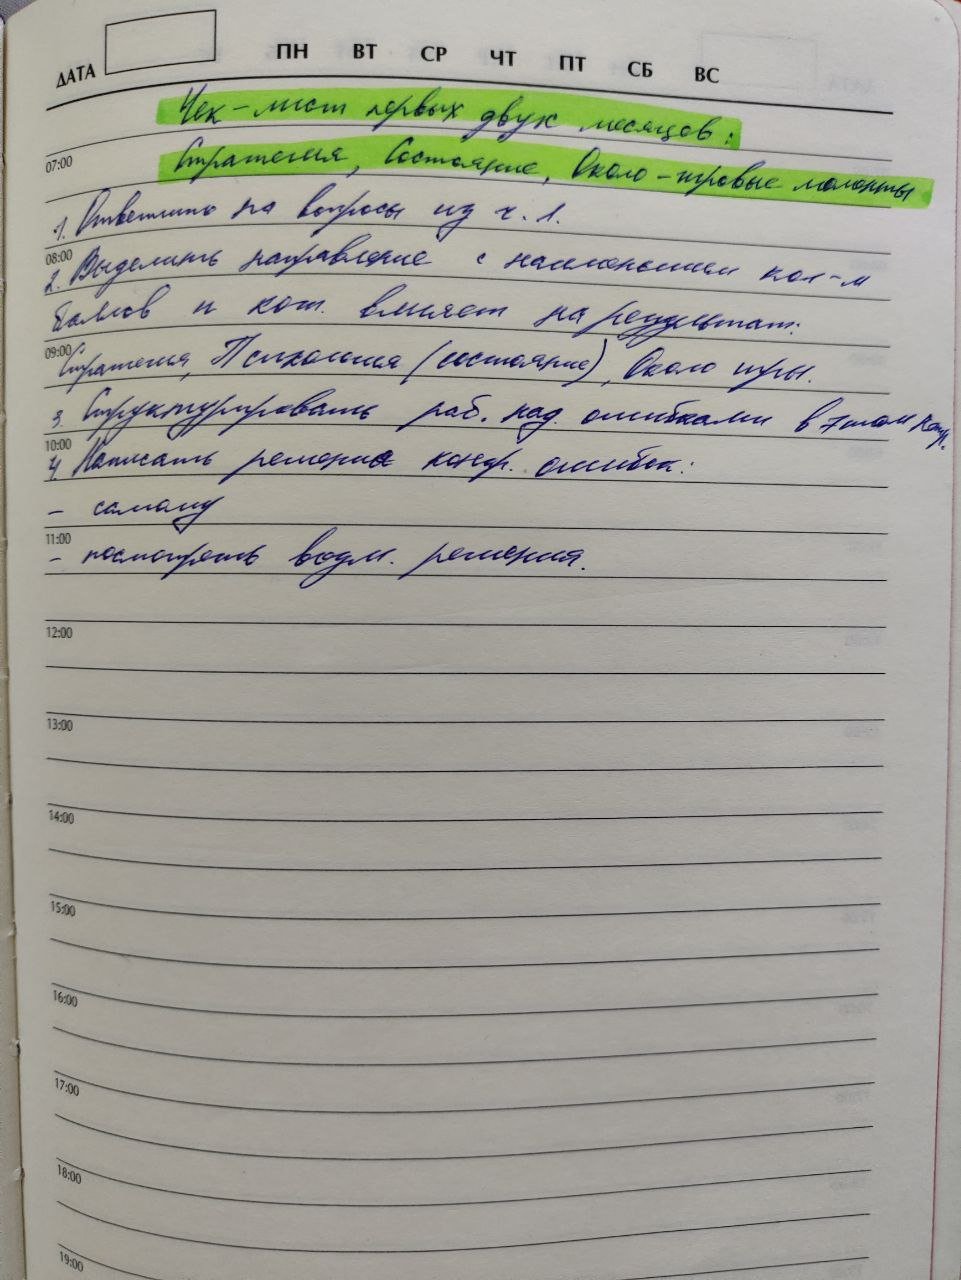 ДАТА ПН ВТ СР ЧТ ПТ СБ ВС
Чек-лист первых двух месяцев:
07:00
Стратегия, Состояние, Около-игровые моменты
1. Ответить на вопросы из ч. 1.
08:00
2. Выделить направление с наименьшем кол-м
баллов и кот. влияет на результат:
09:00
Стратегия, Психология (состояние), Около игры.
3. Структурировать раб. над ошибками в этом напр.
10:00
4. Написать решения конкр. ошибок:
- самому
11:00
- посмотреть возм. решения.
12:00
13:00
14:00
15:00
16:00
17:00
18:00
19:00